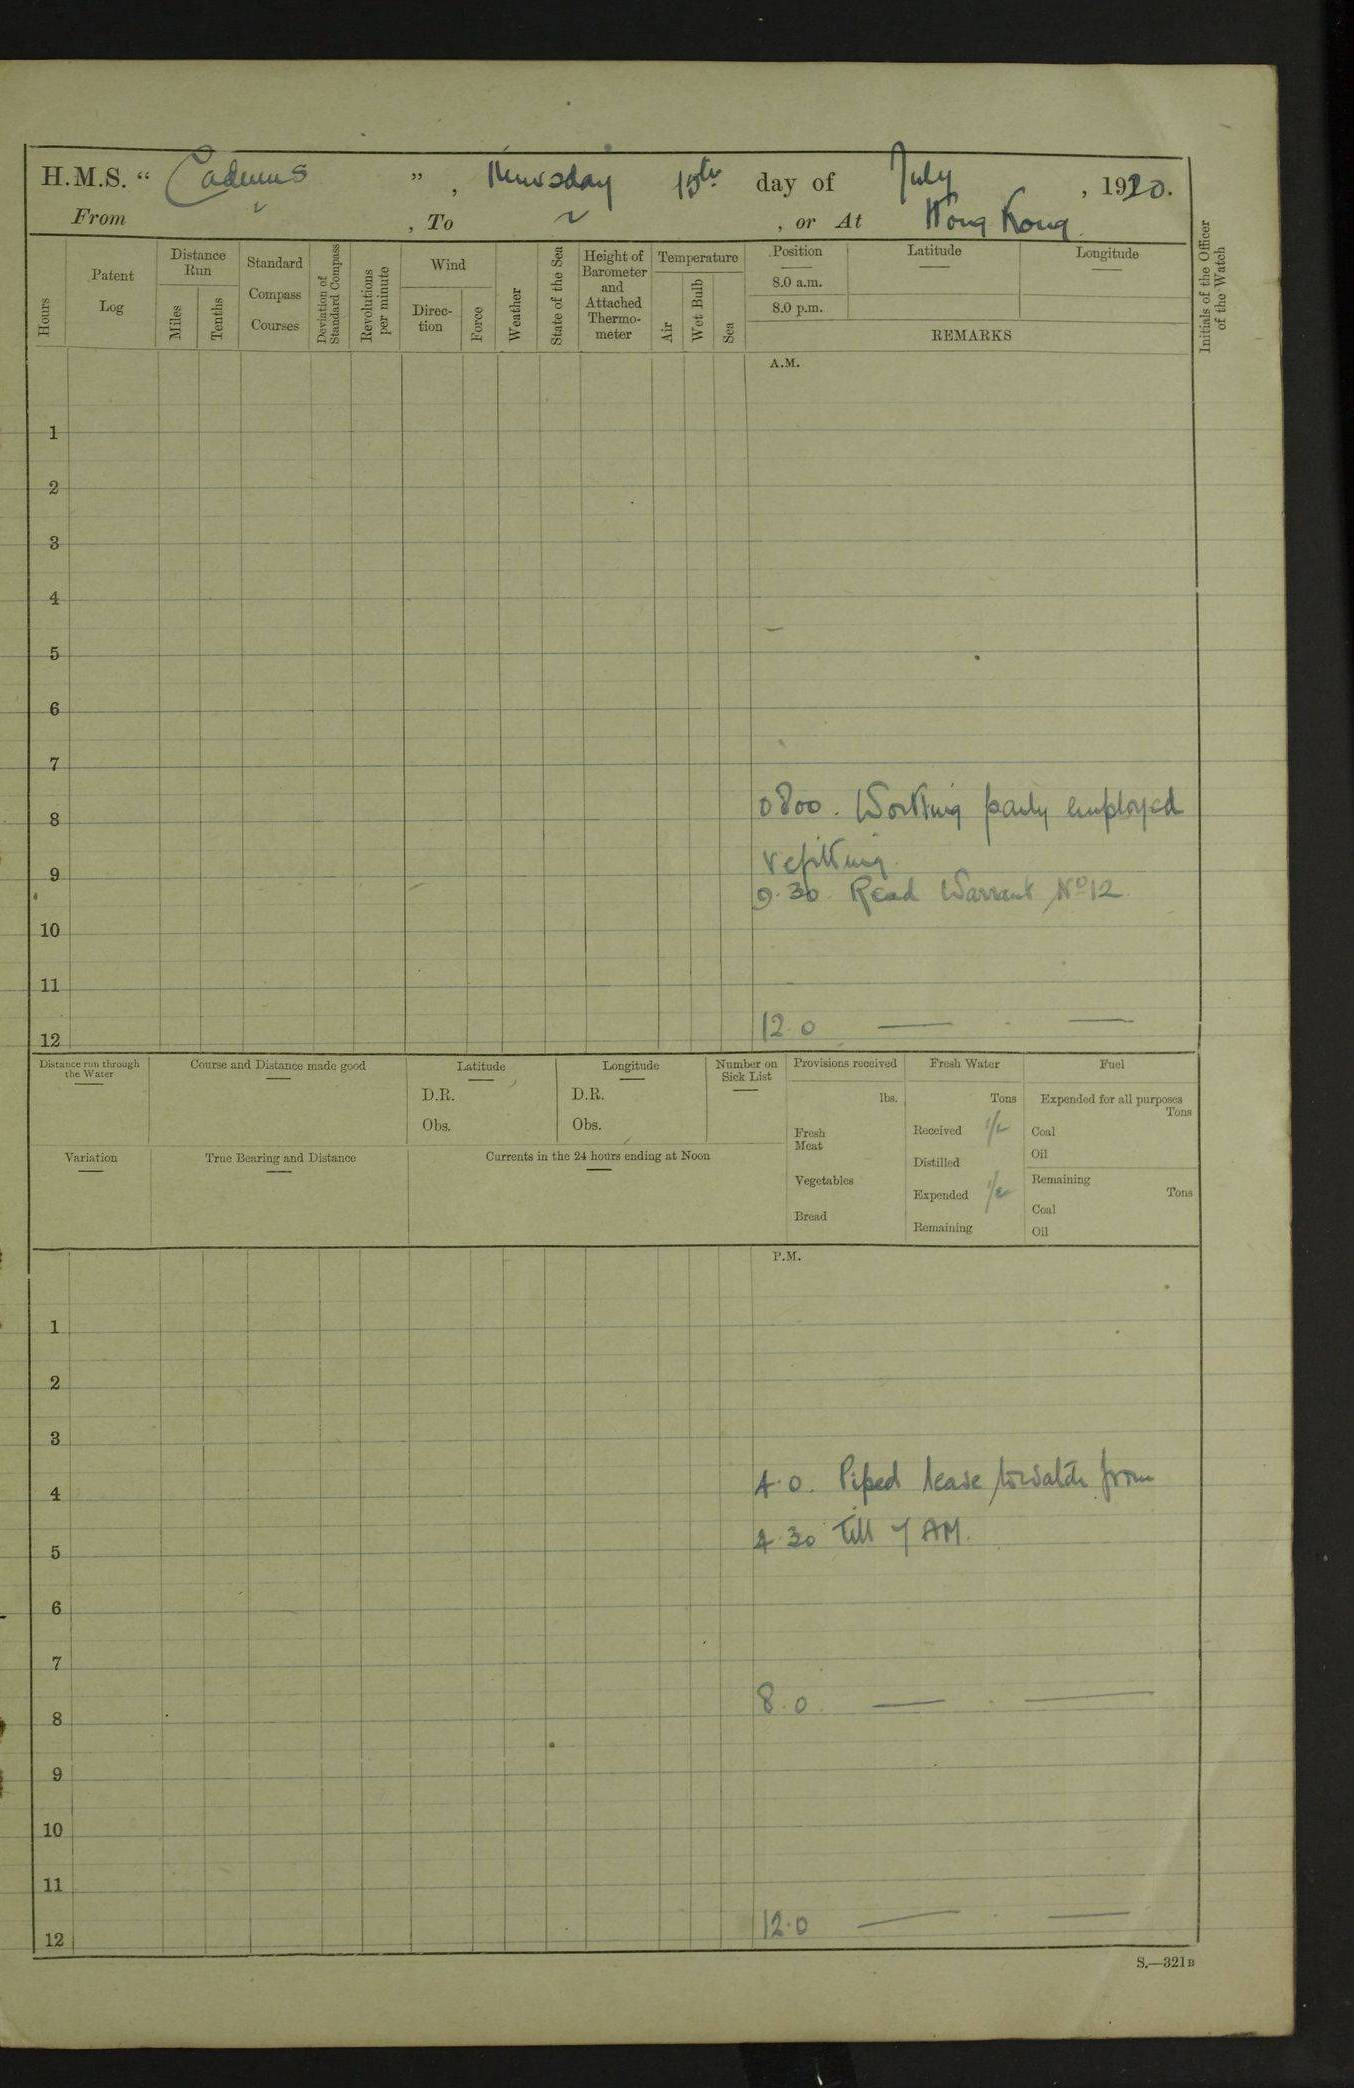 H.M.S. “ Cadmus ” , Thursday 15th day of July , 1920.
From ~ , To ~ , or At Hong Kong.
Hours
Patent Log
Distance Run
Miles
Tenths
Standard Compass Courses
Deviation of Standard Compass
Revolutions per minute
Wind
Direc-
tion
Force
Weather
State of the Sea
Height of
Barometer
and
Attached
Thermo-
meter
Temperature
Air
Wet Bulb
Sea
Position
8.0 a.m.
8.0 p.m.
Latitude
Longitude
REMARKS
Initials of the Officer
of the Watch
A.M.
1
2
3
4
5
6
7
8 0800. Working party employed
refitting.
9
9.30 Read Warrant No 12.
10
11
12 12.0 — . —
Distance run through
the Water
Course and Distance made good
Latitude
D.R.
Obs.
Longitude
D.R.
Obs.
Number on
Sick List
Variation
True Bearing and Distance
Currents in the 24 hours ending at Noon
Provisions received
lbs.
Fresh
Meat
Vegetables
Bread
Fresh Water
Tons
Received 1/2
Distilled
Expended 1/2
Remaining
Fuel
Expended for all purposes
Tons
Coal
Oil
Remaining
Tons
Coal
Oil
P.M.
1
2
3
4 4.0. Piped leave to watch from
5 4.30 till 7 AM.
6
7
8 8.0 — . —
9
10
11
12 12.0 — . —
S.—321B